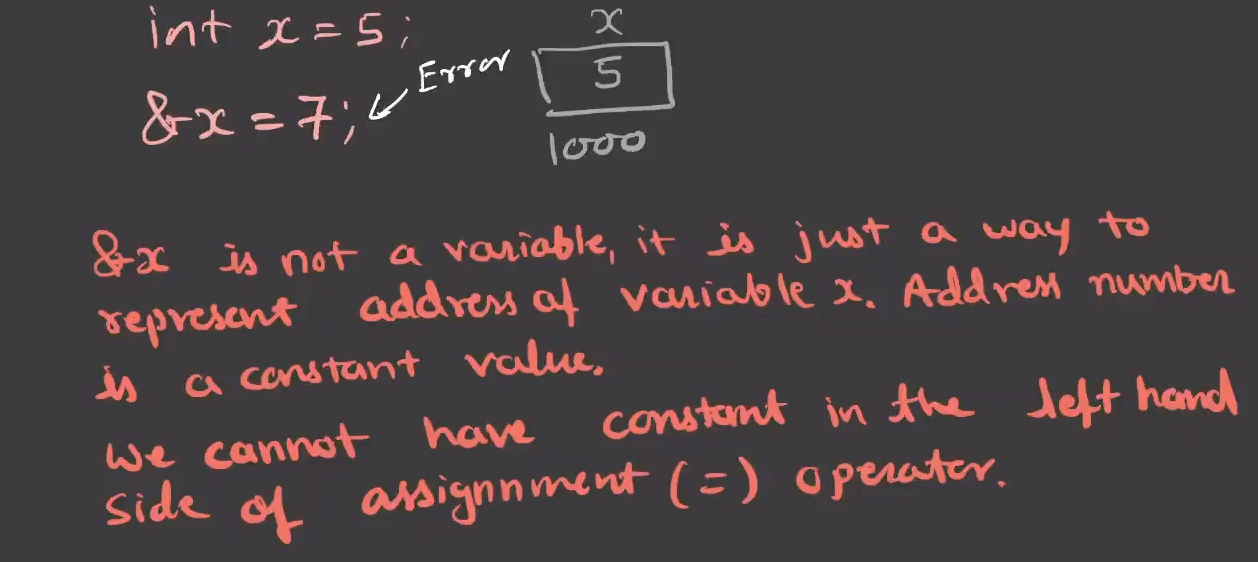 int x = 5;
x
Error
5
&x = 7;
1000
&x is not a variable, it is just a way to
represent address of variable x. Address number
is a constant value.
We cannot have constant in the left hand
side of assignnment (=) operator.